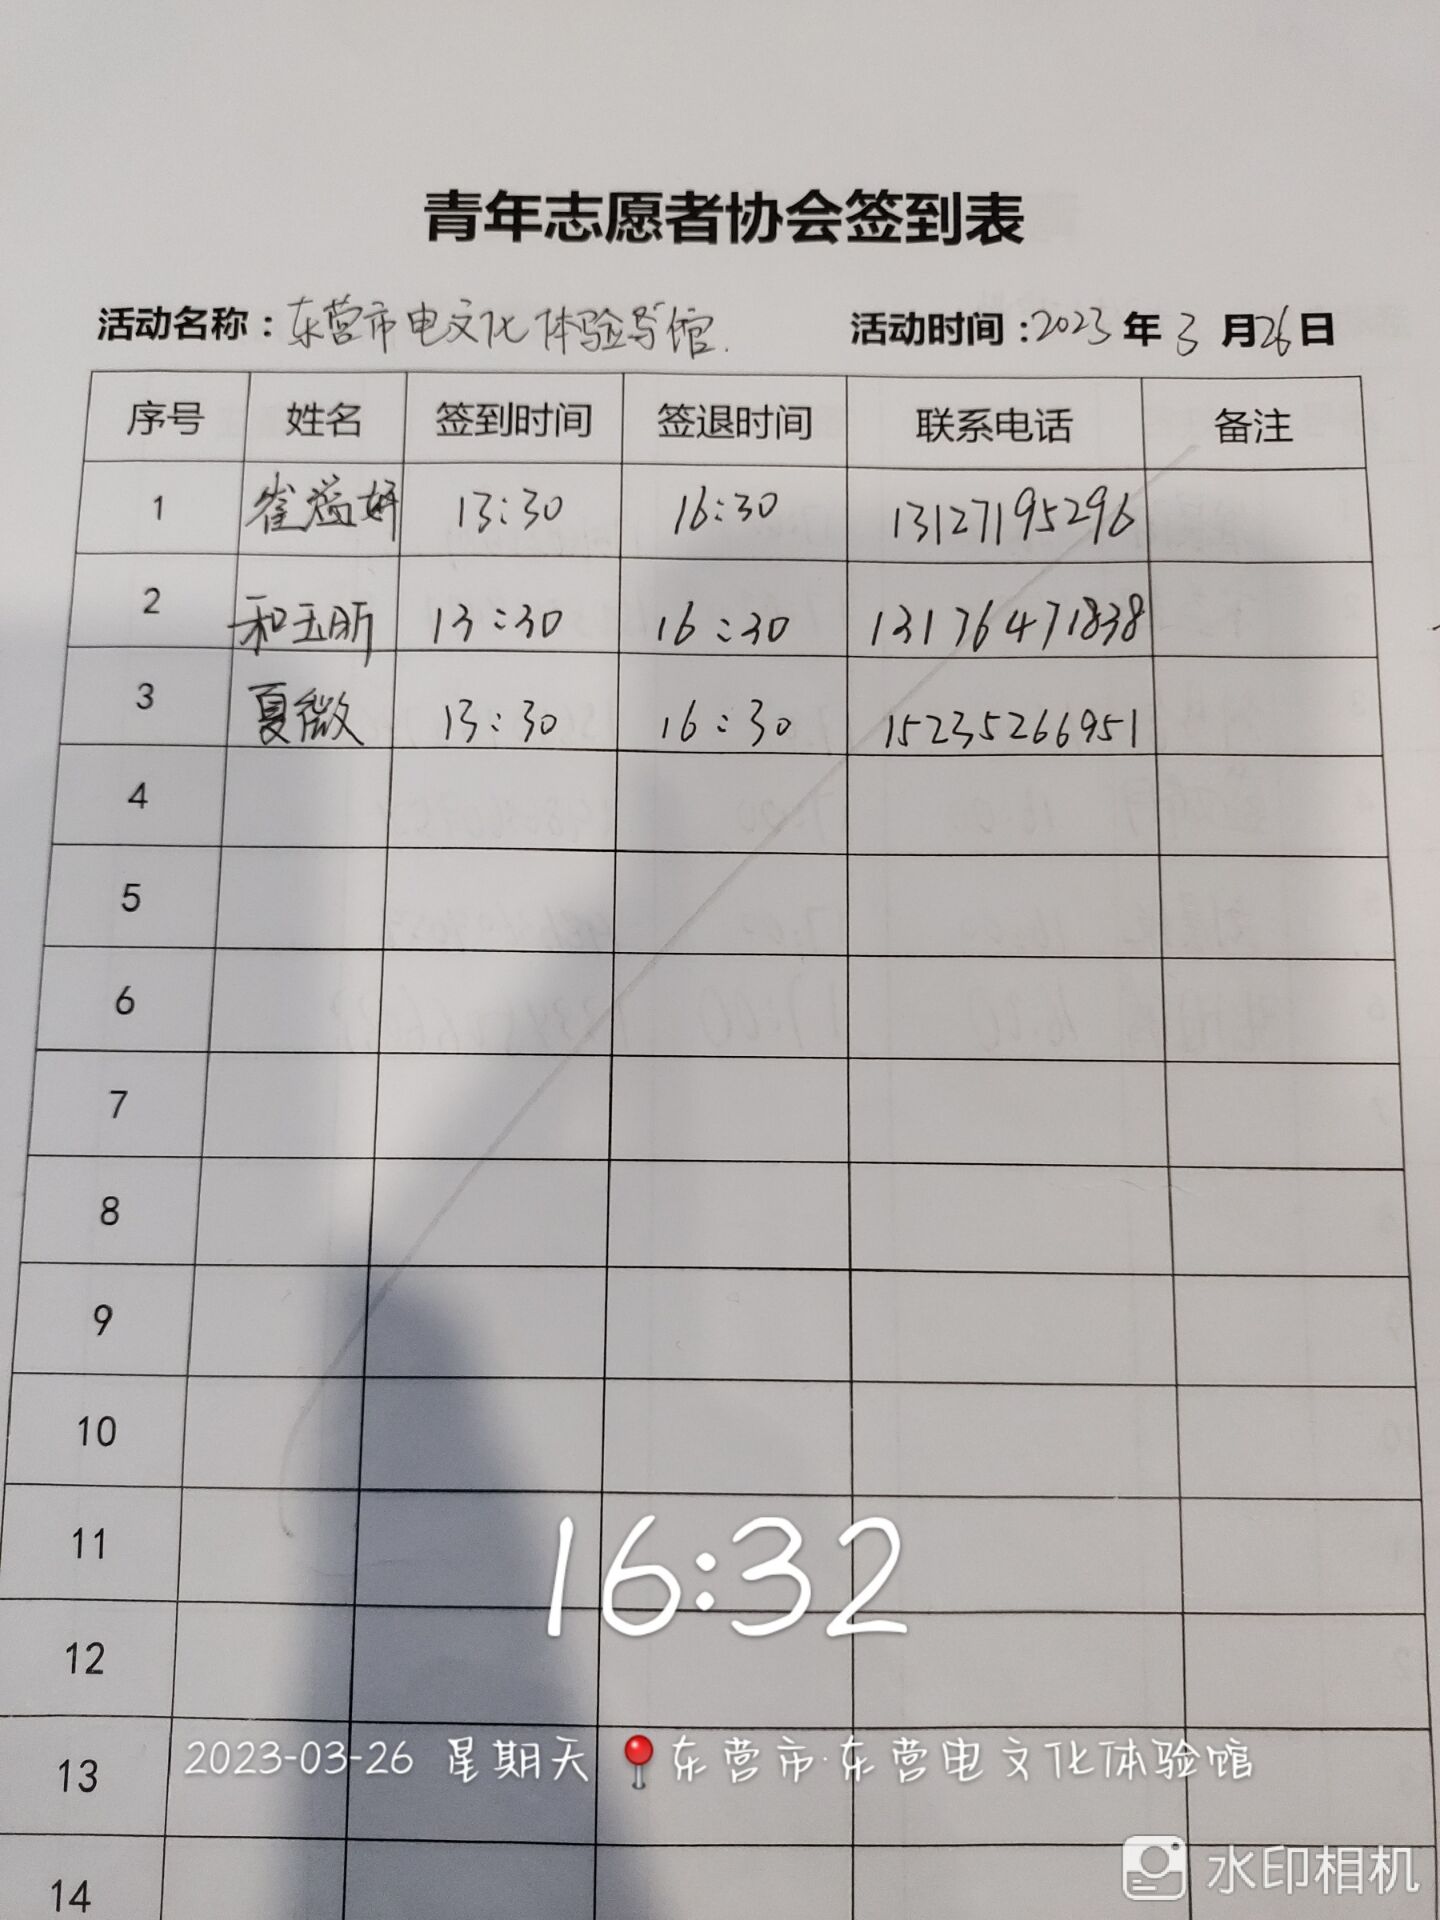 青年志愿者协会签到表
活动名称：东营市电文化体验馆. 活动时间：2023年3月26日
序号 姓名 签到时间 签退时间 联系电话 备注
1 崔溢妍 13:30 16:30 13127195296
2 和玉昕 13:30 16:30 13176471838
3 夏微 13:30 16:30 15235266951
4
5
6
7
8
9
10
11
16:32
12
13
2023-03-26 星期天 东营市·东营电文化体验馆
水印相机
14